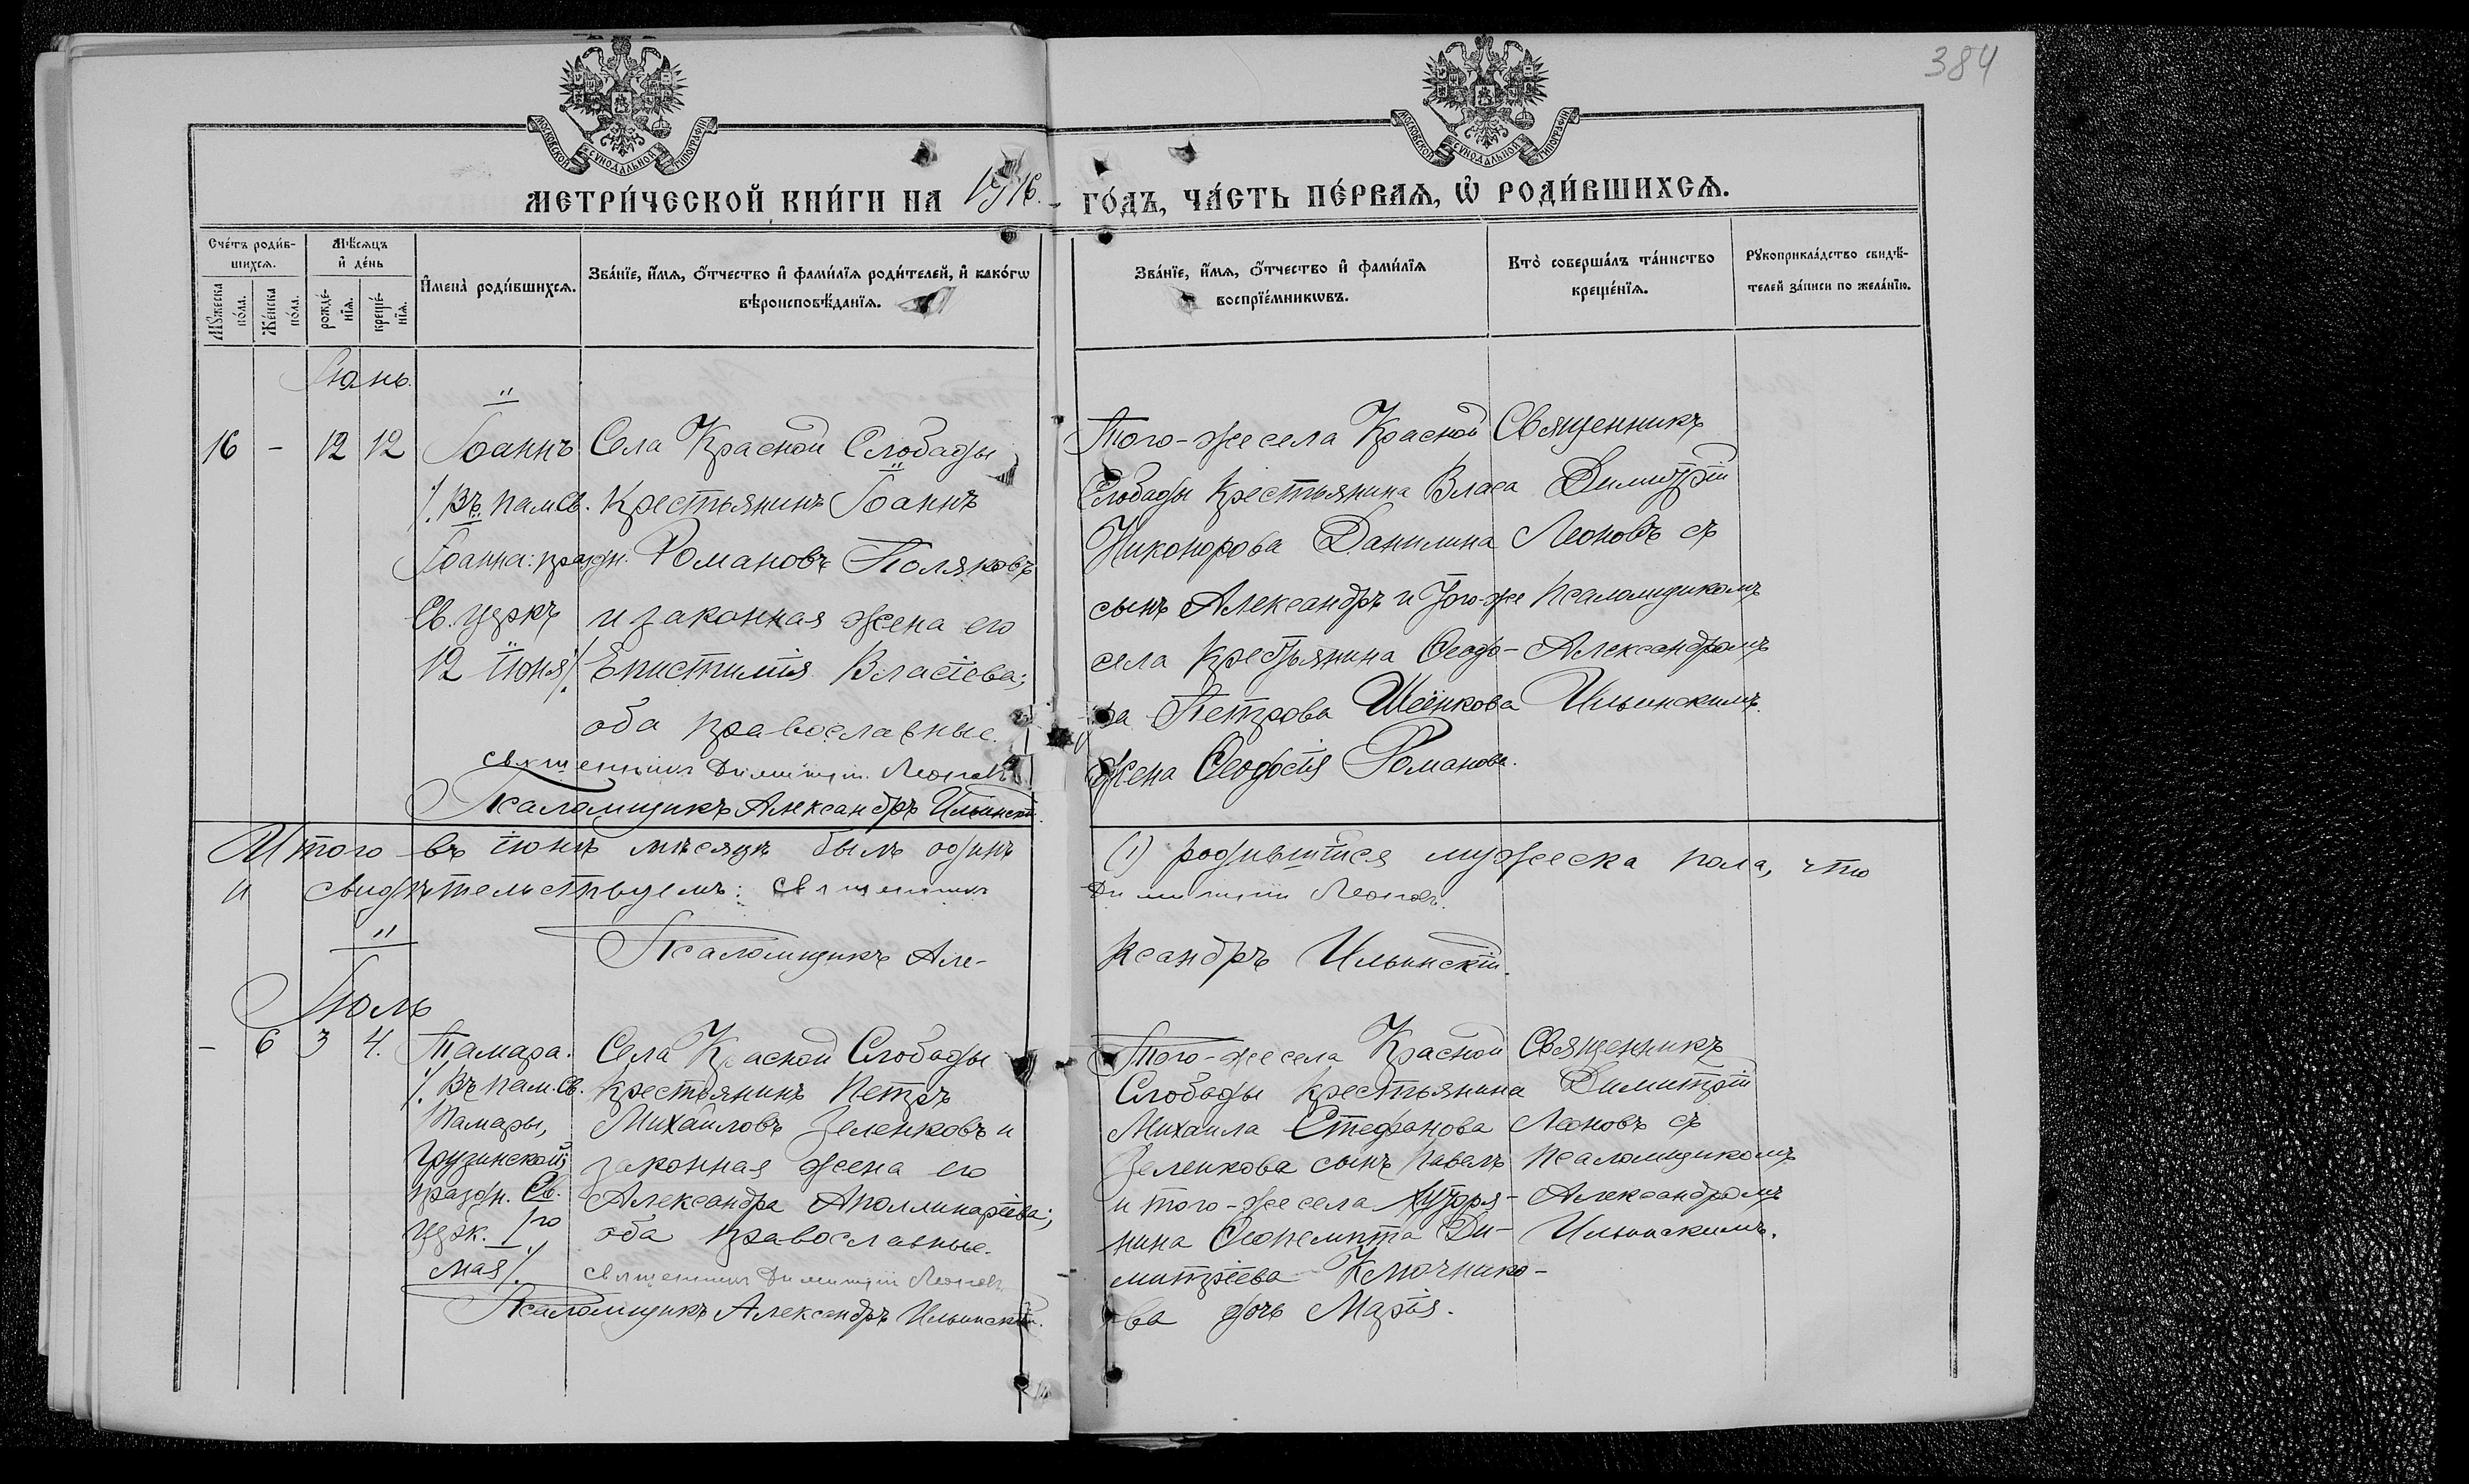 384
МОСКОВСКОЙ СѴНОДАЛЬНОЙ ТИПОГРАФІИ
МОСКОВСКОЙ СѴНОДАЛЬНОЙ ТИПОГРАФІИ
МЕТРИ́ЧЕСКОЙ КНИ́ГИ НА 1916. ГО́ДЪ, ЧА́СТЬ ПЕ́РВАѦ, Ѡ҆ РОДИ́ВШИХСѦ.
Сче́тъ роди́в-
шихсѧ.
Мѣ́сѧцъ
и҆ де́нь
Мꙋ́жеска
по́ла.
Же́нска
по́ла.
рожде́-
нїѧ.
креще́-
нїѧ.
И҆мена̀ роди́вшихсѧ.
Зва́нїе, и҆́мѧ, ѻ҆́тчество и҆ фами́лїѧ роди́телей, и҆ како́гѡ
вѣроисповѣ́данїѧ.
Зва́нїе, и҆́мѧ, ѻ҆́тчество и҆ фами́лїѧ
воспрїе́мникѡвъ.
Кто̀ соверша́лъ та́инство
креще́нїѧ.
Рꙋкоприкла́дство свидѣ́-
телей за́писи по жела́нїю.
Іюнь.
16 - 12 12
Іоаннъ
/. Въ пам св.
Іоанна: праздн.
Св. церк
12 іюня/.
Села Красной Слободы
Крестьянинъ Іоаннъ
Романовъ Поляковъ
и законная жена его
Епистимія Власіева;
оба православные.
Священникъ Димитрій Леоновъ
Псаломщикъ Александръ Ильинскій.
Того-же села Красной
Слободы Крестьянина Власа
Никонорова Данилина
сынъ Александръ и того-же
села Крестьянина Ѳеодо-
ра Петрова Шеенкова
жена Ѳеодосія Романова.
Священникъ
Димитрій
Леоновъ съ
Псаломщикомъ
Александромъ
Ильинскимъ.
Итого въ іюнѣ мѣсяцѣ былъ одинъ (1) родившійся мужеска пола, что
и свидѣтельствуемъ: Священникъ Димитрій Леоновъ.
Псаломщикъ Александръ Ильинскій.
Іюль
- 6 3 4.
Тамара.
/. Въ пам. св.
Тамары,
Грузинской;
праздн. Св.
церк. 1го
мая/.
Села Красной Слободы
Крестьянинъ Петръ
Михайловъ Зеленковъ и
законная жена его
Александра Аполлинаріева;
оба православные.
Священникъ Димитрій Леоновъ.
Псаломщикъ Александръ Ильинскій.
Того-же села Красной
Слободы Крестьянина
Михаила Стефанова
Зеленкова сынъ Павелъ
и того-же села
нина Ѳеопемпта Ди-
митріева Ключнико-
ва дочь Марія.
Священникъ
Димитрій
Леоновъ съ
Псаломщикомъ
Александромъ
Ильинскимъ.